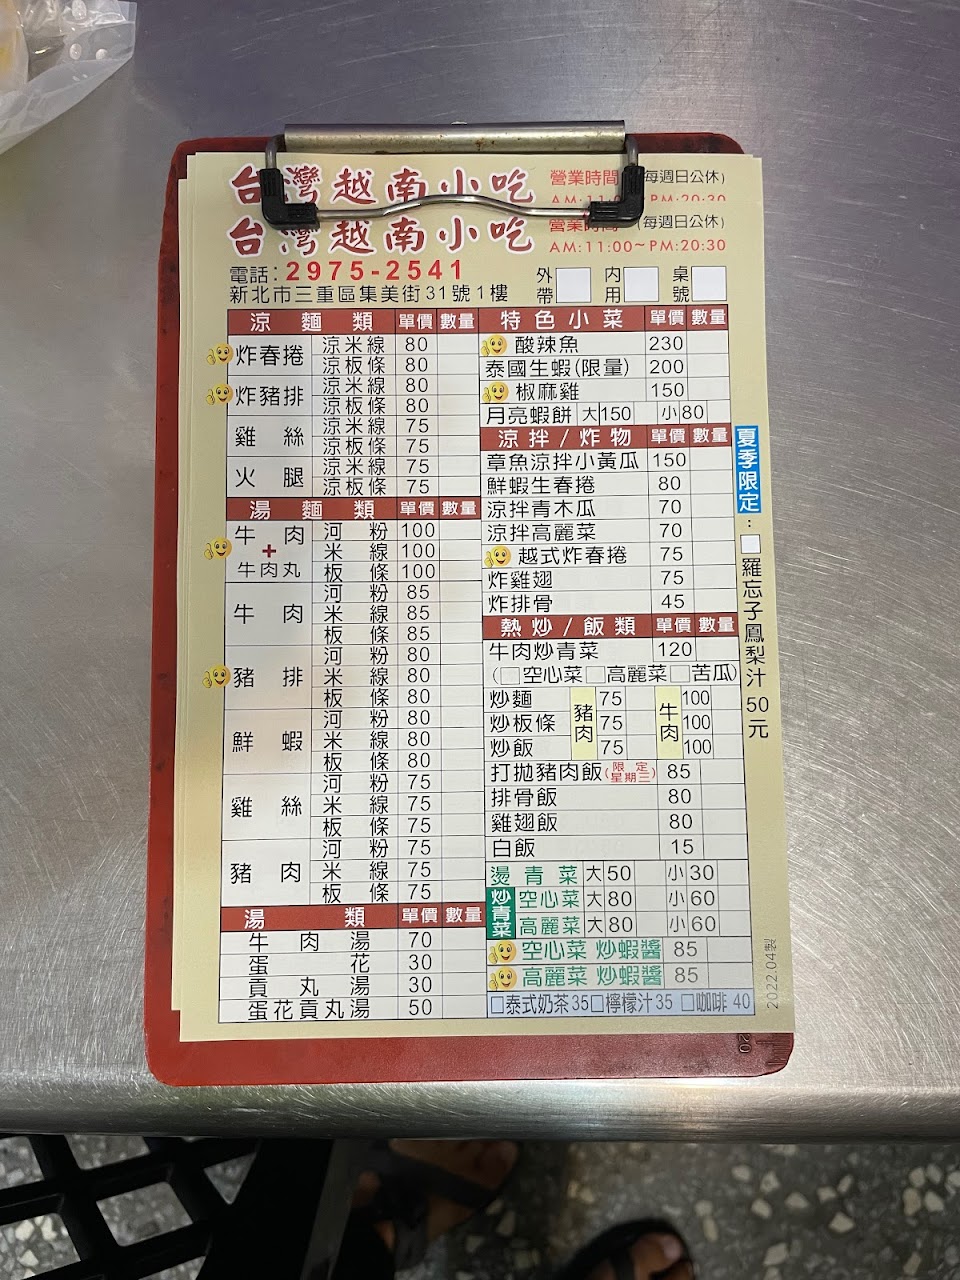 台灣越南小吃 營業時間 (每週日公休)
AM:11:00~PM:20:30
台灣越南小吃 營業時間 (每週日公休)
AM:11:00~PM:20:30
電話:2975-2541
新北市三重區集美街31號1樓
外帶 內用 桌號
涼麵類 單價 數量
炸春捲 涼米線 80
涼板條 80
炸豬排 涼米線 80
涼板條 80
雞絲 涼米線 75
涼板條 75
火腿 涼米線 75
涼板條 75
湯麵類 單價 數量
牛肉+牛肉丸 河粉 100
米線 100
板條 100
牛肉 河粉 85
米線 85
板條 85
豬排 河粉 80
米線 80
板條 80
鮮蝦 河粉 80
米線 80
板條 80
雞絲 河粉 75
米線 75
板條 75
豬肉 河粉 75
米線 75
板條 75
湯類 單價 數量
牛肉湯 70
蛋花 30
貢丸湯 30
蛋花貢丸湯 50
特色小菜 單價 數量
酸辣魚 230
泰國生蝦(限量) 200
椒麻雞 150
月亮蝦餅 大150 小80
涼拌/炸物 單價 數量
章魚涼拌小黃瓜 150
鮮蝦生春捲 80
涼拌青木瓜 70
涼拌高麗菜 70
越式炸春捲 75
炸雞翅 75
炸排骨 45
熱炒/飯類 單價 數量
牛肉炒青菜 120
(□空心菜□高麗菜□苦瓜)
炒麵 豬肉 75 牛肉 100
炒板條 75 100
炒飯 75 100
打拋豬肉飯(限定星期三) 85
排骨飯 80
雞翅飯 80
白飯 15
燙青菜 大50 小30
炒青菜 空心菜 大80 小60
高麗菜 大80 小60
空心菜 炒蝦醬 85
高麗菜 炒蝦醬 85
□泰式奶茶35□檸檬汁35 □咖啡 40
夏季限定:□羅忘子鳳梨汁50元
2022.04製
20